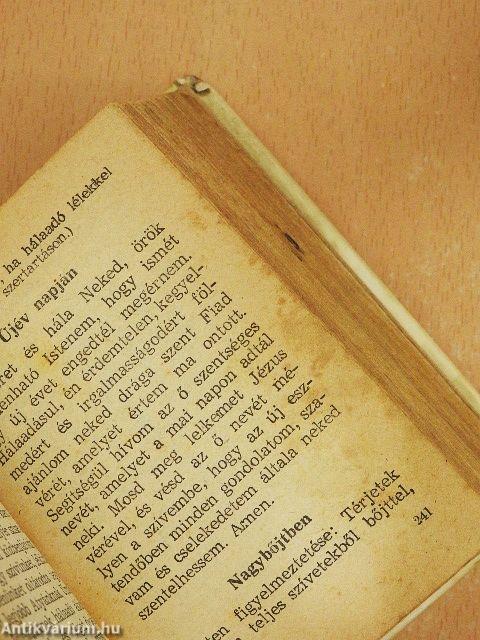 ha hálaadó lélekkel
szertartáson.)
Újév napján
és hála Neked, örök
Istenem, hogy ismét
új évet engedtél megérnem.
Hálaadásul, én érdemtelen, kegyel-
medért és irgalmasságodért föl-
ajánlom neked drága szent Fiad
vérét, amelyet értem ma ontott.
Segítségül hívom az ő szentséges
nevét, amelyet a mai napon adtál
neki. Mosd meg lelkemet Jézus
vérével, és vésd az ő nevét mé-
lyen a szívembe, hogy az új esz-
tendőben minden gondolatom, sza-
vam és cselekedetem általa neked
szentelhessem. Amen.
Nagybőjtben
figyelmeztetése: Térjetek
teljes szívetekből bőjttel,
241
Antikvarium.hu